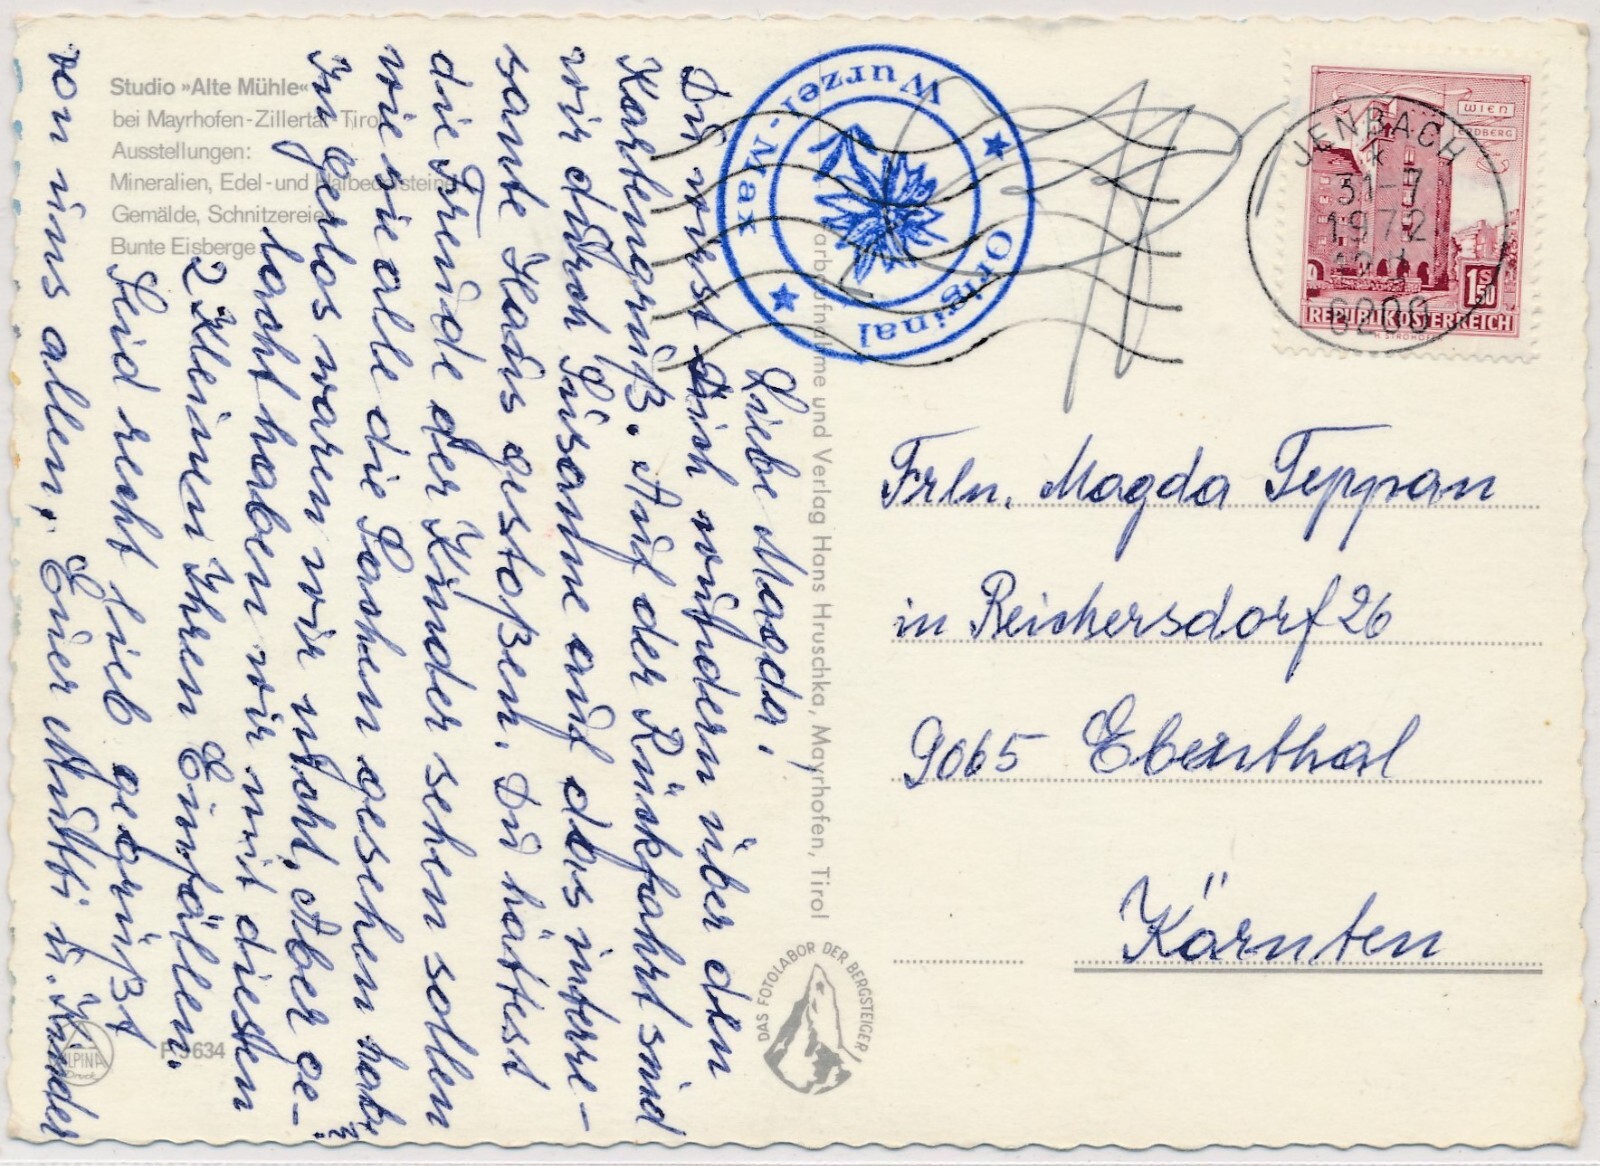 Studio »Alte Mühle«
bei Mayrhofen-Zillertal Tirol
Ausstellungen:
Mineralien, Edel-und Halbedelsteine
Gemälde, Schnitzereien
Bunte Eisberge
Liebe Magda,
Du wirst Dich wundern über den
Kartengruß. Auf der Rückfahrt sind
wir durch Susanne auf das intere-
sante Haus gestoßen. Du hättest
die Freude der Kinder sehen sollen
wie sie alle die Sachen gesehen haben
In Gerlos waren wir nicht. Aber ge-
lacht haben wir mit diesen
2 Kleinen Ihren Einfällen.
Seid recht lieb gegrüßt
von uns allen, Euer Mutti u. Kinder
ALPINA
Druck
Farbaufnahme und Verlag Hans Hruschka, Mayrhofen, Tirol
DAS FOTOLABOR DER BERGSTEIGER
Original
Wurzel-Max
JENBACH
31-7
1972
6200
WIEN
ERDBERG
1 S 50
REPUBLIK ÖSTERREICH
Frln. Magda Teppan
in Reichersdorf 26
9065 Ebenthal
Kärnten